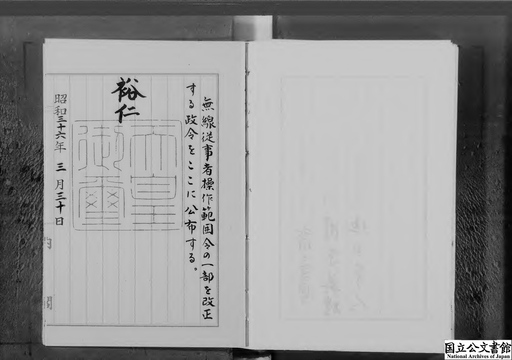 無線従事者操作範囲令の一部を改正
する政令をここに公布する。
裕仁
天皇
御璽
昭和三十六年 三月三十日
内閣
国立公文書館
National Archives of Japan